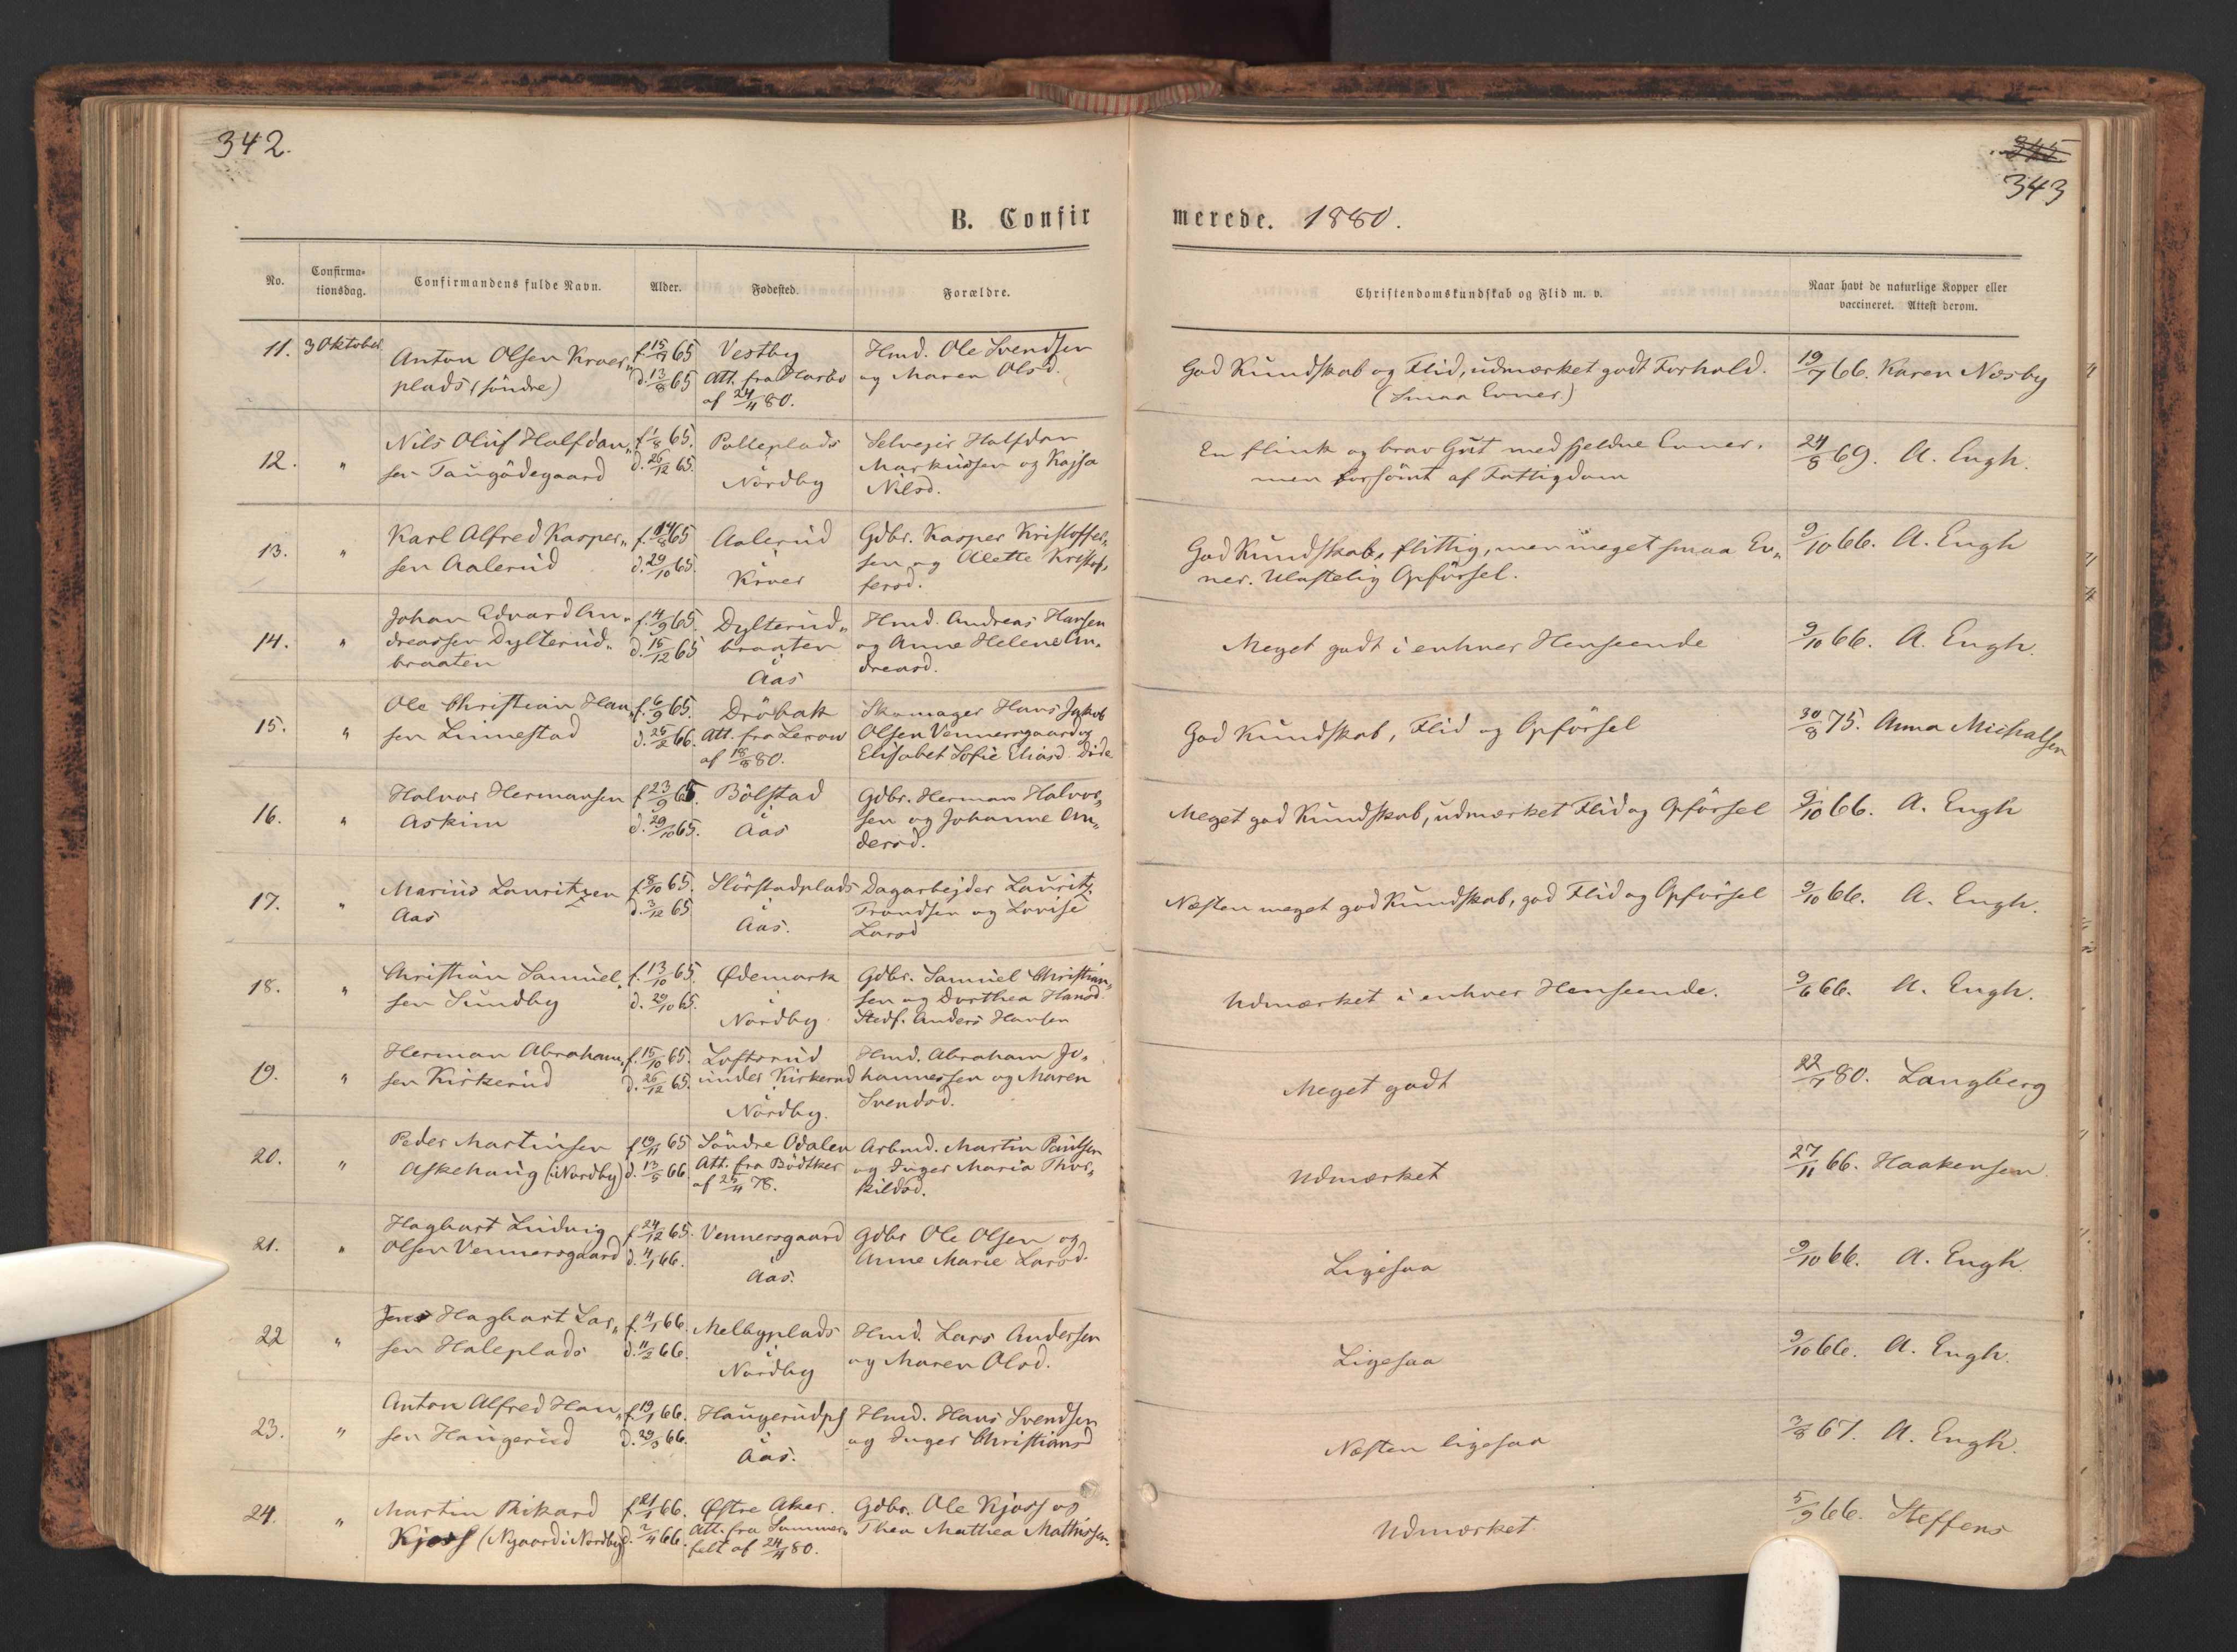 342.
345
343
B. Confirmerede. 1880.
No.
Confirma-
tionsdag.
Confirmandens fulde Navn.
Alder.
Fødested.
Forældre.
Christendomskundskab og Flid m. v.
Naar havt de naturlige Kopper eller
vaccineret. Attest derom.
11. 3 Oktober
Anton Olsen Kroer„
plads (söndre)
f. 15/4 65
d. 13/8 65
Vestby
Att. fra
af 24/4 80.
Hmd. Ole Svendsen
og Maren Olsd.
God Kundskab og Flid, udmærket godt Forhold.
(Smaa Evner)
19/7 66. Karen Næsby
12. "
Nils Oluf Halfdan„
sen Taugödegaard
f. 1/8 65.
d. 26/12 65.
Palleplads
i
Nordby
Selveier Halfdan
Markussen og Kajsa
Nilsd.
En flink og brav Gut med sjeldne Evner,
men forsömt af Fattigdom
24/8 69. A. Engh.
13. "
Karl Alfred Kasper„
sen Aalerud
f. 14/8 65
d. 29/10 65.
Aalerud
i
Kroer
Gdbr. Kasper Kristoffer„
sen og Alette Kristof„
fersd.
God Kundskab, flittig, men meget smaa Ev„
ner. Ulastelig Opförsel.
9/10 66. A. Engh
14. "
Johan Edvard An„
dreassen Dylterud„
braaten
f. 4/9 65.
d. 15/12 65
Dylterud„
braaten
i
Aas
Hmd. Andreas Hansen
og Anne Helene An„
dreasd.
Meget godt i enhver Henseende
9/10 66. A. Engh.
15. "
Ole Christian Han„
sen Linnestad
f. 6/9 65.
d. 25/2 66.
Dröbak
Att. fra Lerow
af 18/8 80.
Skomager Hans Jakob
Olsen Vennersgaard og
Elisabet Sofie Eliasd.
God Kundskab, Flid og Opförsel
30/8 75. Anna Michalsen
16. "
Halvor Hermansen
Askim
f. 23/9 65.
d. 29/10 65.
Bölstad
i
Aas
Gdbr. Herman Halvor„
sen og Johanne An„
dersd.
Meget god Kundskab, udmærket Flid og Opförsel
9/10 66. A. Engh
17. "
Marius Lauritzen
Aas
f. 8/10 65.
d. 3/12 65
Slörstadplads
i
Aas.
Dagarbejder Laurits
Trondsen og Lovise
Larsd
Næsten meget god Kundskab, god Flid og Opförsel
9/10 66. A. Engh.
18. "
Christian Samuel„
sen Sundby
f. 13/10 65.
d. 29/10 65.
Ødemark
i
Nordby
Gdbr. Samuel Christian„
sen og Dorthea Hansd.
Stedf. Anders Hansen
Udmærket i enhver Henseende.
9/6 66. A. Engh.
19. "
Herman Abraham„
sen Kirkerud
f. 15/10 65.
d. 26/12 65.
Loftsrud
under Kirkerud
i
Nordby.
Hmd. Abraham Jo„
hannessen og Maren
Svendsd.
Meget godt
22/7 80. Langberg
20. "
Peder Martinsen
Askehaug (i Nordby)
f. 19/11 65
d. 13/5 66
Söndre Odalen
Att. fra Bödtker
af 25/4 78.
Arbmd. Martin Paulsen
og Inger Maria Thor„
kildsd.
Udmærket
27/11 66. Haakensen
21. "
Haghart Ludvig
Olsen Vennersgaard
f. 24/12 65.
d. 4/1 66.
Vennersgaard
i
Aas.
Gdbr Ole Olsen og
Anne Marie Larsd.
Ligesaa
9/10 66. A. Engh.
22 "
Jens Haghart Lar„
sen Haleplads
f. 4/1 66.
d. 11/2 66.
Melbyplads
i
Nordby
Hmd. Lars Andersen
og Maren Olsd.
Ligesaa
9/10 66. A. Engh.
23. "
Anton Alfred Han„
sen Haugerud
f. 19/1 66.
d. 29/3 66.
Haugerudpl
i
Aas.
Hmd. Hans Svendsen
og Inger Christiansd
Næsten ligesaa
3/8 67. A. Engh.
24. "
Martin Rikard
Kjoss (Nygaard i Nordby)
f. 21/1 66.
d. 2/4 66.
Østre Aker.
Att. fra Sommer„
felt af 24/4 80.
Gdbr. Ole Kjoss og
Thea Mathea Mathissen.
Udmærket
5/9 66. Steffens